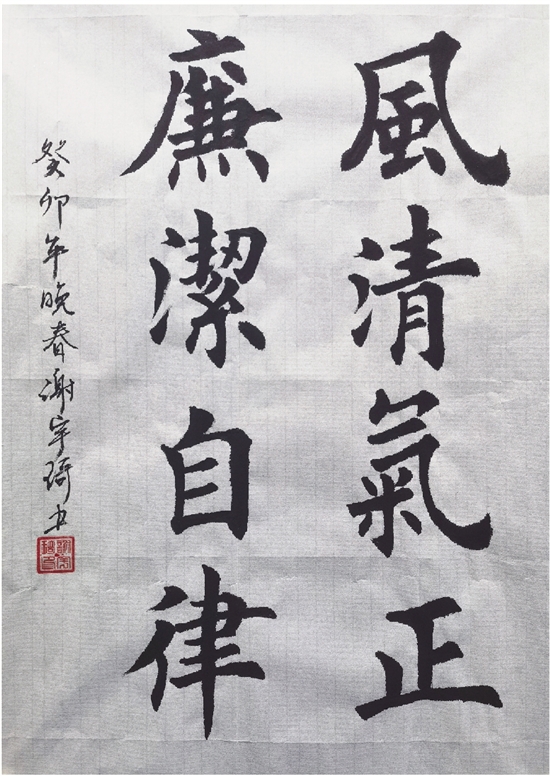 風清氣正
廉潔自律
癸卯年晚春谢宇琦书